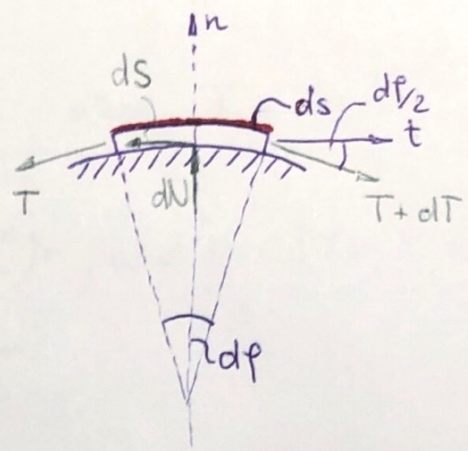 n
dS
ds
dφ/2
t
T
dN
T + dT
dφ